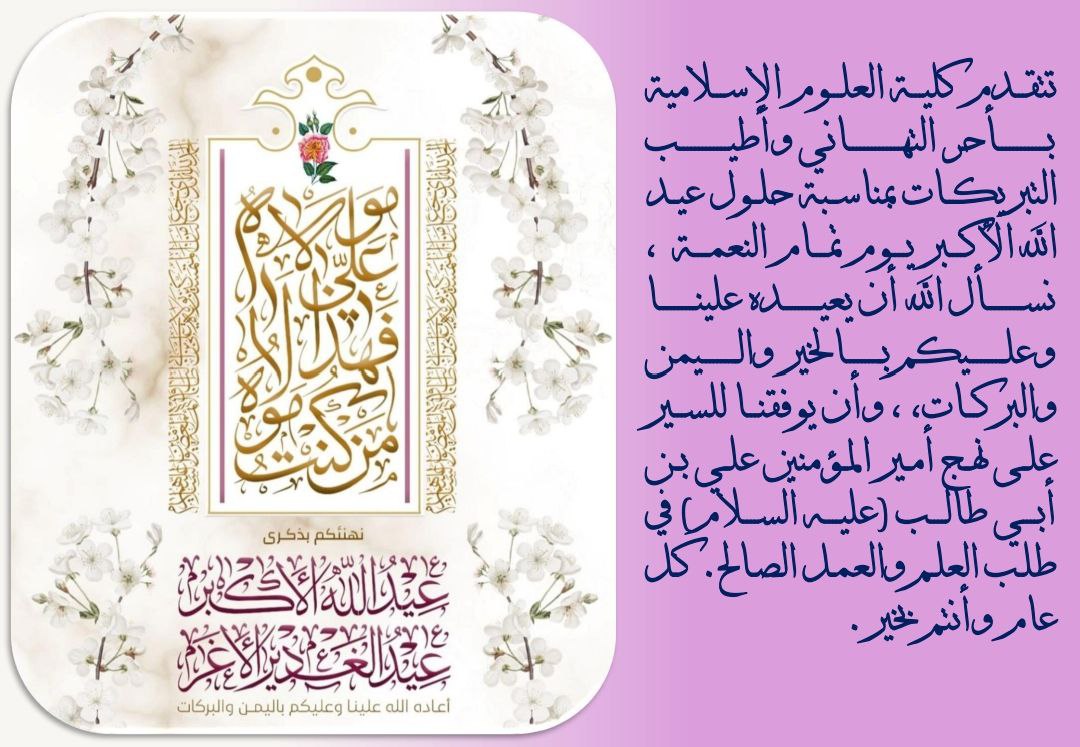 تتقدم كلية العلوم الإسلامية
بأحر التهاني وأطيب
التبريكات بمناسبة حلول عيد
الله الأكبر يوم تمام النعمة ،
نسأل الله أن يعيده علينا
وعليكم بالخير واليمن
والبركات، ، وأن يوفقنا للسير
على نهج أمير المؤمنين علي بن
أبي طالب (عليه السلام) في
طلب العلم والعمل الصالح. كل
عام وأنتم بخير .
من كنت مولاه
فهذا علي مولاه
نهنئكم بذكرى
عيد الله الأكبر
عيد الغدير الأغر
أعاده الله علينا وعليكم باليمن والبركات